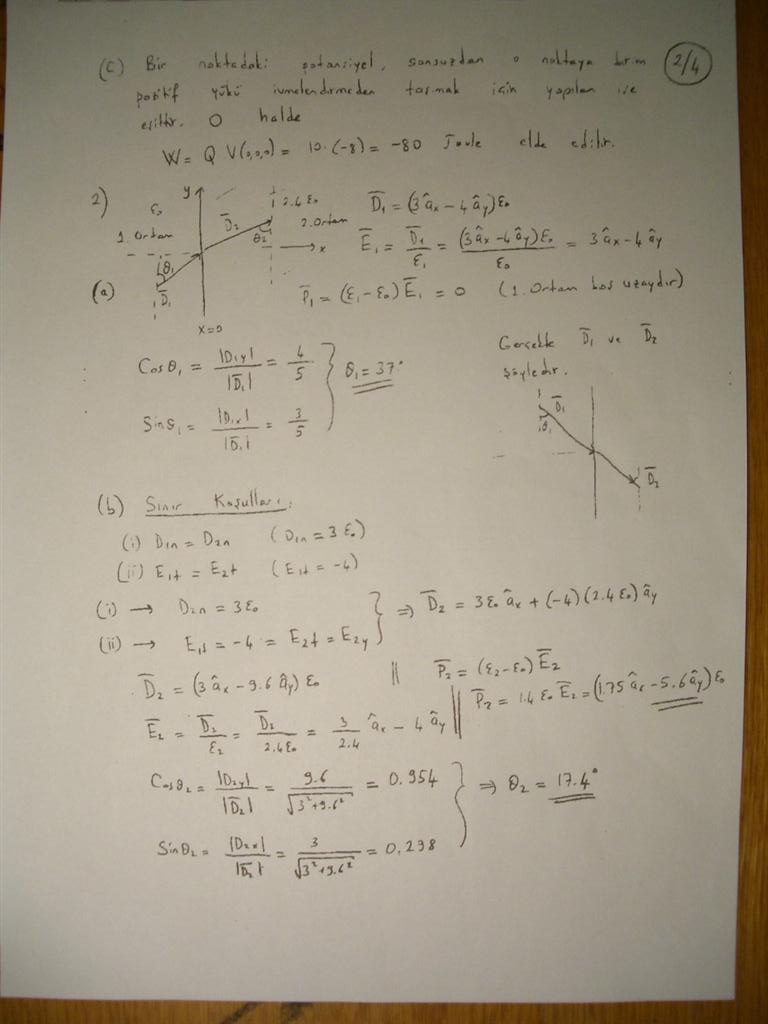 (C) Bir noktadaki potansiyel, sonsuzdan o noktaya birim 2/4
pozitif yükü ivmelendirmeden taşımak için yapılan işe
eşittir. O halde
W = Q V(0,0,0) = 10·(-8) = -80 Joule elde edilir.
2)
ε₀
1. Ortam
y
D̅₂
2.4 ε₀
2. Ortam
θ₂
x
θ₁
D̅₁
x=0
D̅₁ = (3 âx - 4 ây) ε₀
E̅₁ = D̅₁/ε₁ = (3 âx - 4 ây) ε₀/ε₀ = 3 âx - 4 ây
(a) P̅₁ = (ε₁ - ε₀) E̅₁ = 0 (1. Ortam boş uzaydır)
Cosθ₁ = |D₁y|/|D̅₁| = 4/5
Sinθ₁ = |D₁x|/|D̅₁| = 3/5
} θ₁ = 37°
Gerçekte D̅₁ ve D̅₂
şöyledir.
D̅₁
θ₁
D̅₂
(b) Sınır Koşulları:
(i) D₁n = D₂n (D₁n = 3 ε₀)
(ii) E₁t = E₂t (E₁t = -4)
(i) → D₂n = 3ε₀
(ii) → E₁t = -4 = E₂t = E₂y
} ⇒ D̅₂ = 3ε₀ âx + (-4)(2.4 ε₀) ây
D̅₂ = (3 âx - 9.6 ây) ε₀ || P̅₂ = (ε₂ - ε₀) E̅₂
|| P̅₂ = 1.4 ε₀ E̅₂ = (1.75 âx - 5.6 ây) ε₀
E̅₂ = D̅₂/ε₂ = D̅₂/2.4ε₀ = 3/2.4 âx - 4 ây
Cosθ₂ = |D₂y|/|D̅₂| = 9.6/√(3²+9.6²) = 0.954
Sinθ₂ = |D₂x|/|D̅₂| = 3/√(3²+9.6²) = 0.298
} ⇒ θ₂ = 17.4°